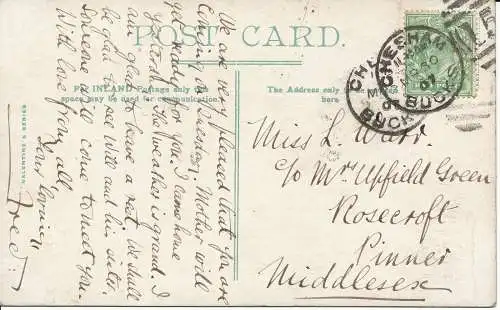 POST CARD.
FOR INLAND Postage only this
space may be used for communication.
The Address
We are very pleased that you are
coming on Tuesday. Mother will
get ready for you. I came home
The weather is grand. I
am glad to have a rest. We shall
be glad to see Will and his sister.
Someone will come to meet you.
With love from all
Your Cousin
Fred.
Miss L. Ward.
c/o Mrs Upfield Green
Rosecroft
Pinner
Middlesex
CHESHAM
BUCKS
07
CHESHAM
BUCKS
07